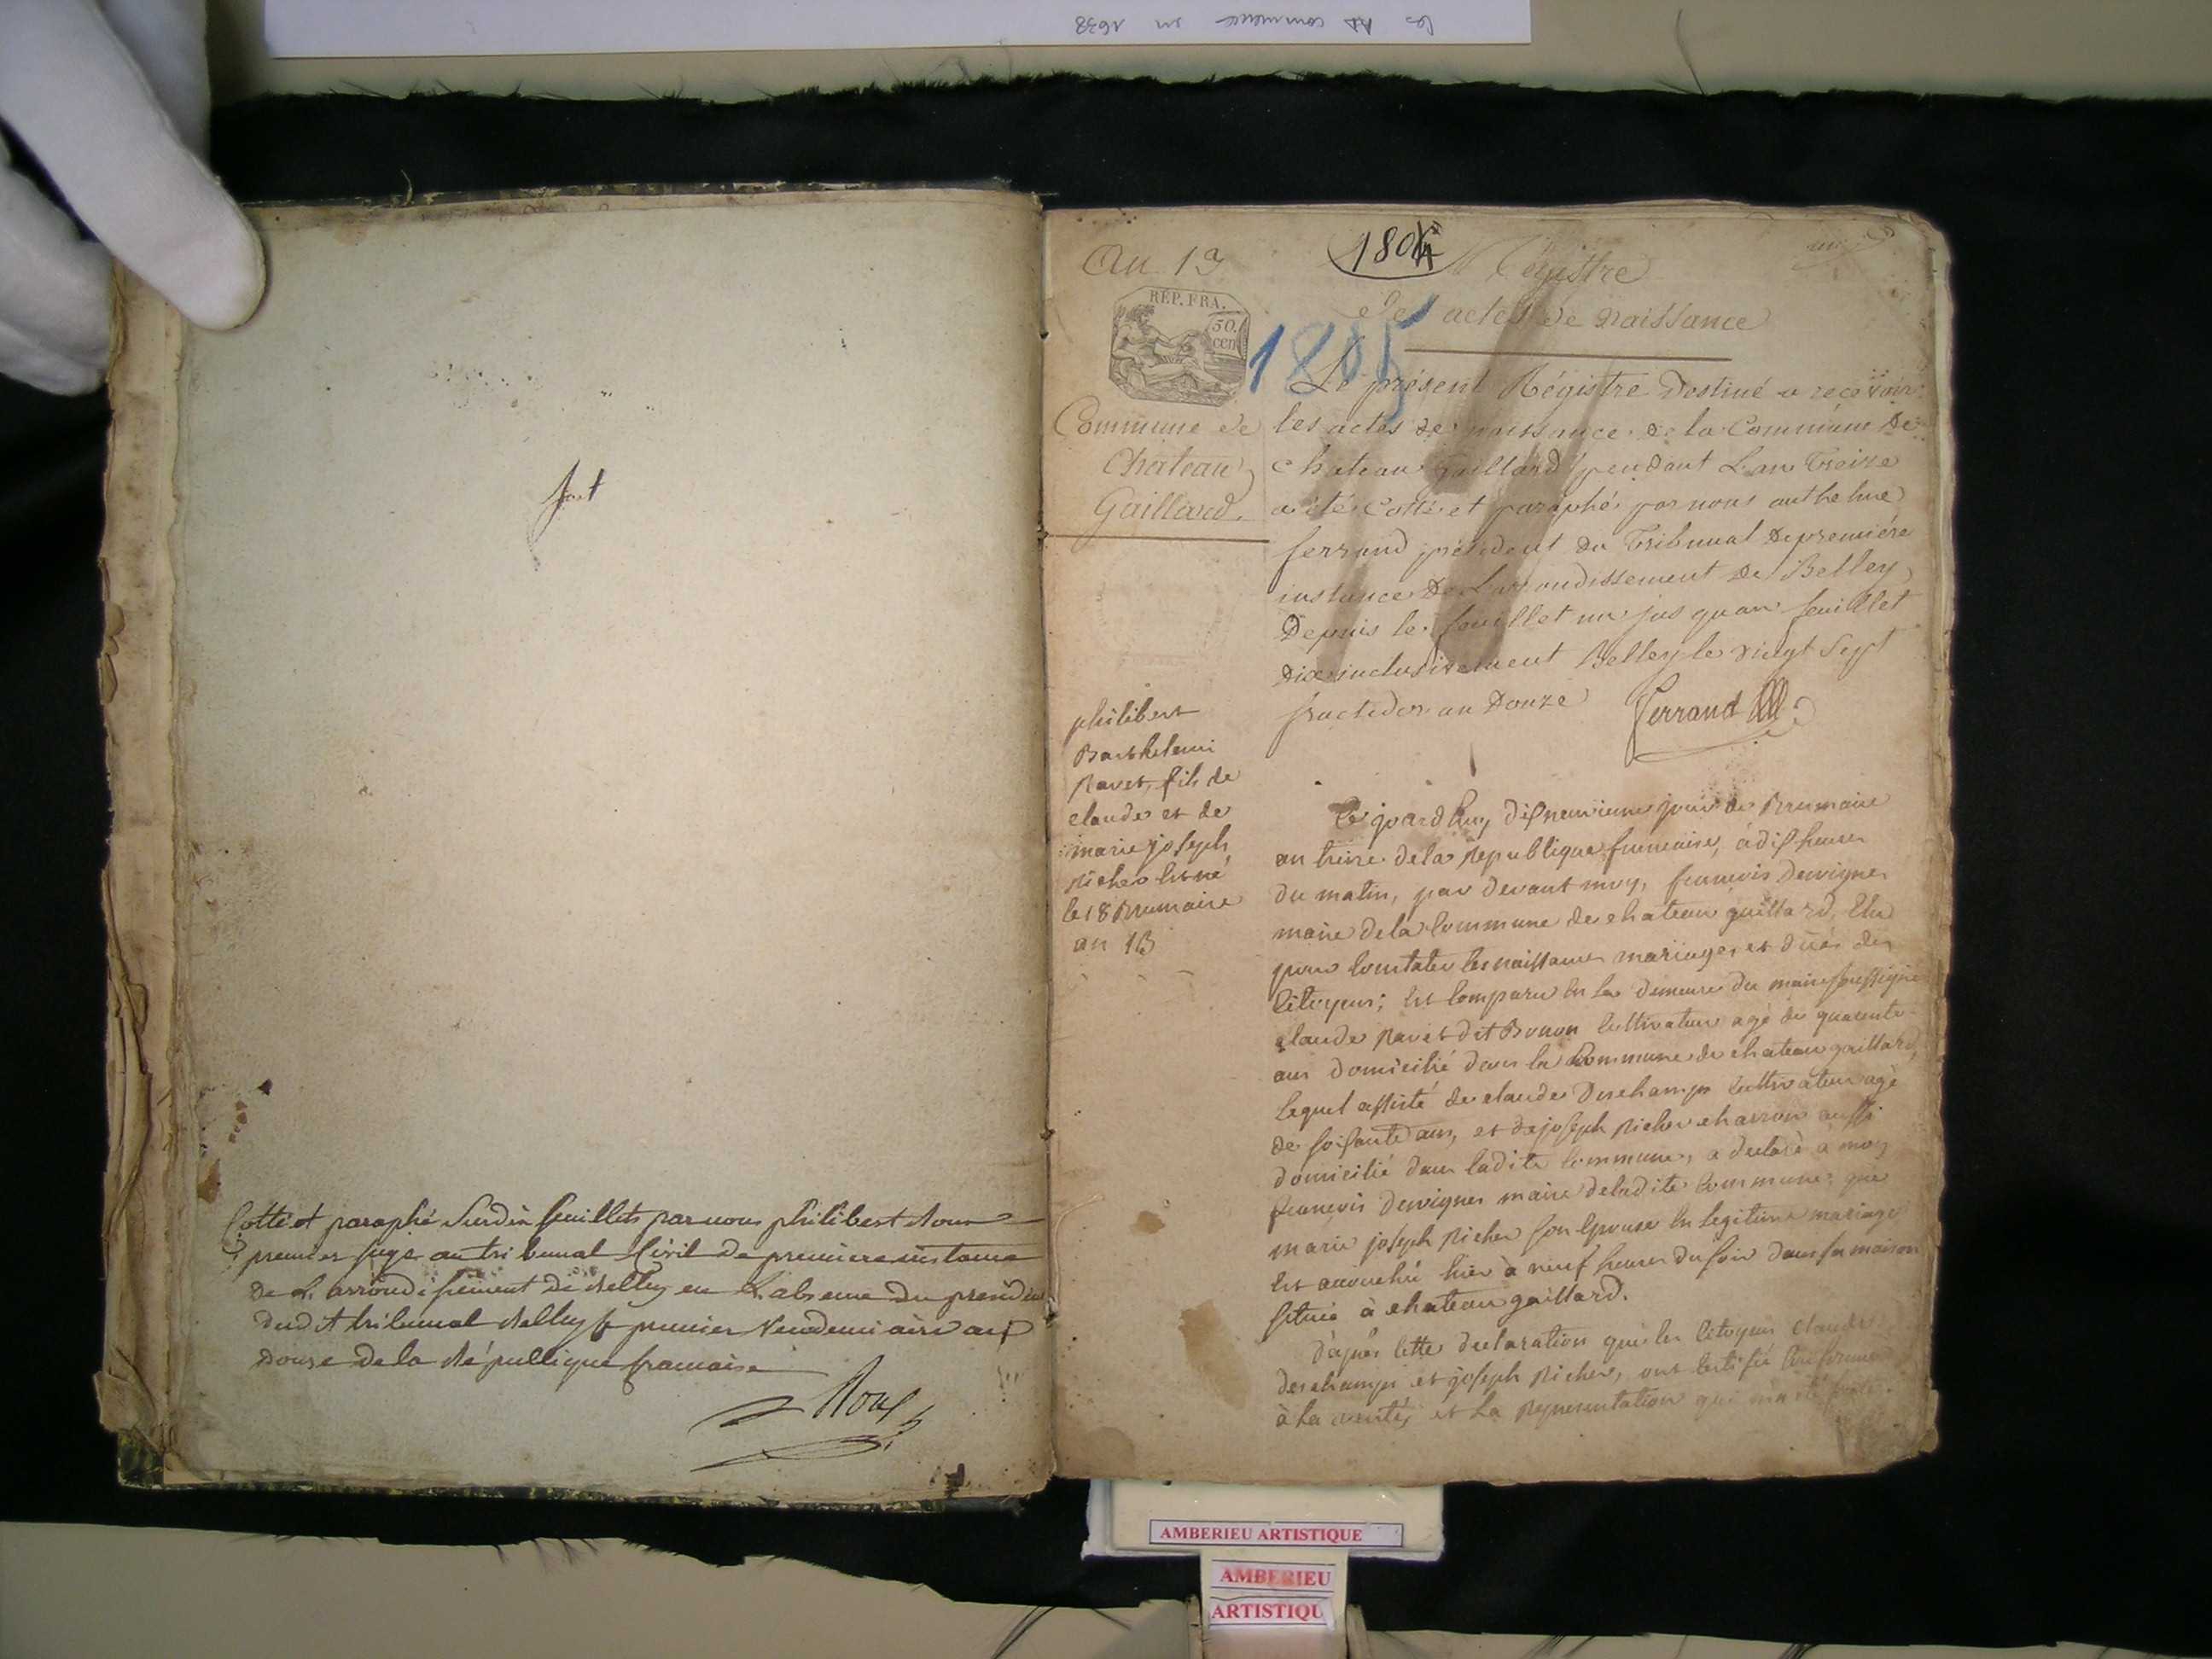 les comence en 1638
fort
Cotté et paraphé Surdix feuillets par nous philibert Roux
premier juge au tribunal Civil de premiere instance
de L'arrondissement de Belley en L'absence du president
dudit tribunal Belley le premier Vendemiaire an
Douze de la République francaise
Roux
An 13
1804
un
Registre
des actes de naissance
REP. FRA.
50.
cen
1805
Commune de
Chateau
Gaillard.
Le présent Régistre Destiné a recevoir
les actes de naissance de la Commune De
chateau Gaillard pendant L'an treize
a été Cotté et paraphé par nous anthelme
ferrand président du Tribunal De premiére
instance De L'arrondissement De Belley
Depuis le feuillet un jus quau feuillet
Dix inclusivement Belley le vingt Sept
fructidor an Douze Ferrand
philibert
Barthelemi
Ravet, fils de
claude et de
marie joseph
Richer est né
le 18 Brumaire
an 13
Ce jourd'huy dix neuvieme jour de Brumaire
an treize de la Republique francaise, à dix heures
du matin, par devant moy, francois Dervignes
maire de la Commune de chateau gaillard, Elu
pour Constater les naissances mariages et décès des
Citoyens; est Comparu en la demeure du maire soussigné
claude Ravet dit Bonon Cultivateur agé de quarente
ans domicilié dans la Commune de chateau gaillard,
lequel assisté de claude Deschamps Cultivateur agé
de soixante ans, et de joseph Richer charron aussi
domicilié dans ladite Commune, a declaré à moy
francois Dervignes maire de ladite Commune, que
marie joseph Richer son Epouse en legitime mariage
est accouchée hier à neuf heures du soir dans sa maison
située à chateau gaillard.
d'après cette declaration que les Citoyens claude
deschamps et joseph Richer, ont Certifié Conforme
à la verité, et la Representation qui m'a été faite
AMBERIEU ARTISTIQUE
AMBERIEU
ARTISTIQU